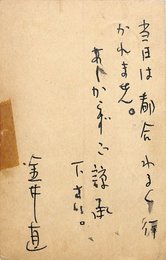 当日は都合わるく行
かれません。
あしからず ご諒承
下さい。
金井直